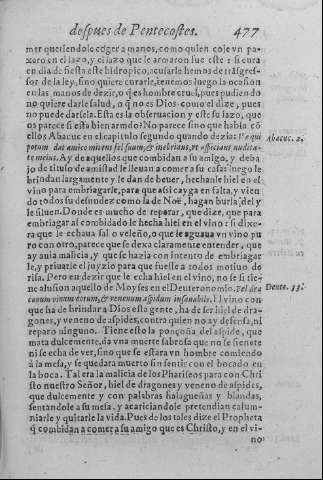 despues de Pentecostes. 477
mer queriendole coger a manos, como quien coje vn pa-
xaro en el lazo, y el lazo que le armaron fue este: si cura
en dia de fiesta este hidropico, acusarle hemos de trãsgres-
sor de la ley, sino quiere curarle, tenemos luego la ocasion
en las manos de dezir, o q̃ es hombre cruel, pues pudiendo
no quiere darle salud, o q̃ no es Dios como el dize, pues
no puede darsela. Esta es la obseruacion y este su lazo, que
os parece si esta bien armado? No parece sino que habla cõ
ellos Abacuc en el capitulo segundo quando dezia: Væ qui
potum dat amico mittens fel suum, & inebrians, vt aspiciat nudita-
tẽ eius. Ay de aquellos que combidan a su amigo, y deba
jo de titulo de amistad le lleuan a comer a su casa: luego le
brindan largamente y le dan de beuer, hechanle hiel en el
vino para embriagarle, para que assi cayga en falta, y vien
do todos su desnudez como la de Noë, hagan burla del y
le siluen. Donde es mucho de reparar, que dize, que para
embriagar al combidado le hecha hiel en el vino: si dixe-
ra que le echaua sal o veleño, o que le aguaua vn vino pu
ro con otro, parece que se dexa claramente entender, que
ay auia malicia, y que se hazia con intento de embriagar
le, y priuarle el juyzio para que fuesse a todos motiuo de
risa. Pero en dezir que le echa hiel en el vino, no se si tie-
ne alusion aquello de Moyses en el Deuteronomio. Fel dra
conum vinum eorum, & venenum aspidum insanabile. El vino con
que ha de brindar a Dios esta gente, ha de ser hiel de dra-
gones, y veneno de aspides, contra quien no ay defensa, ni
reparo ninguno. Tiene esto la ponçoña del aspide, que
mata dulcemente, da vna muerte sabrosa que no se siente
ni se echa de ver, sino que se estara vn hombre comiendo
à la mesa, y se quedara muerto sin sentir con el bocado en
la boca. Tal era la malicia de los Phariseos para con Chri
sto nuestro Señor, hiel de dragones y veneno de aspides,
que dulcemente y con palabras halagueñas y blandas,
sentandole a su mesa, y acariciandole pretendian calum-
niarle y quitarle la vida. Pues de los tales dize el Propheta
q̃ combidan a comer a su amigo que es Christo, y en el vi-
no
Abacuc. 2.
Deute. 33.